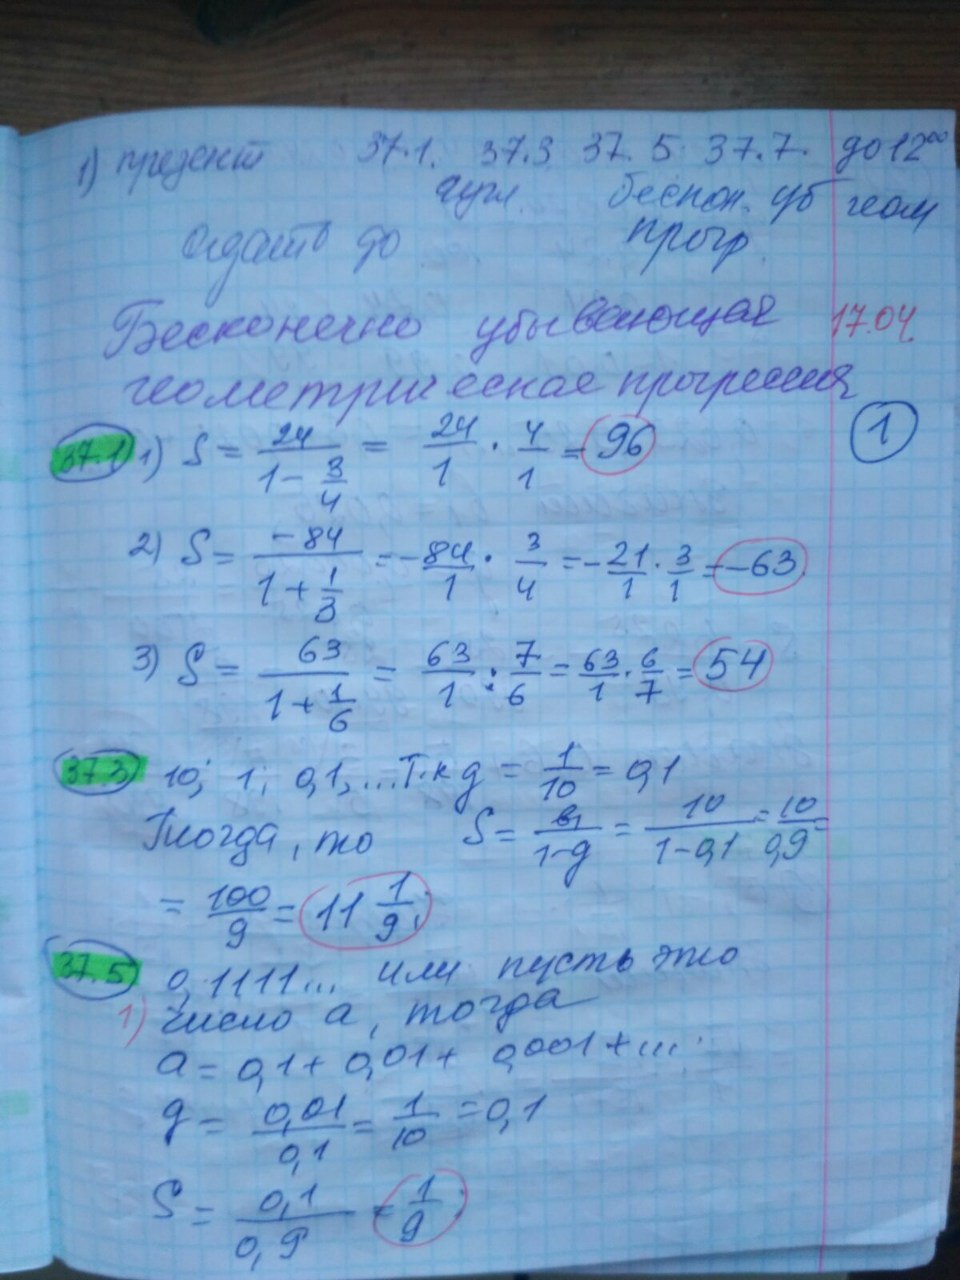 1) презент 37.1. 37.3 37.5. 37.7. до 12⁰⁰
бескон. уб геом
сдать до прогр.
Бесконечно убывающая 17.04
геометрическая прогрессия
1
37.1 1) S = 24/(1 - 3/4) = 24/1 · 4/1 = 96
2) S = -84/(1 + 1/3) = -84/1 · 3/4 = -21/1 · 3/1 = -63
3) S = 63/(1 + 1/6) = 63/1 : 7/6 = 63/1 · 6/7 = 54
37.3 10; 1; 0,1,... Т.к q = 1/10 = 0,1
Тогда, то S = в₁/(1-q) = 10/(1-0,1) = 10/0,9 =
= 100/9 = 11 1/9;
37.5 0,1111... или пусть это
1) число а, тогда
а = 0,1 + 0,01 + 0,001 + ...
q = 0,01/0,1 = 1/10 = 0,1
S = 0,1/0,9 = 1/9;